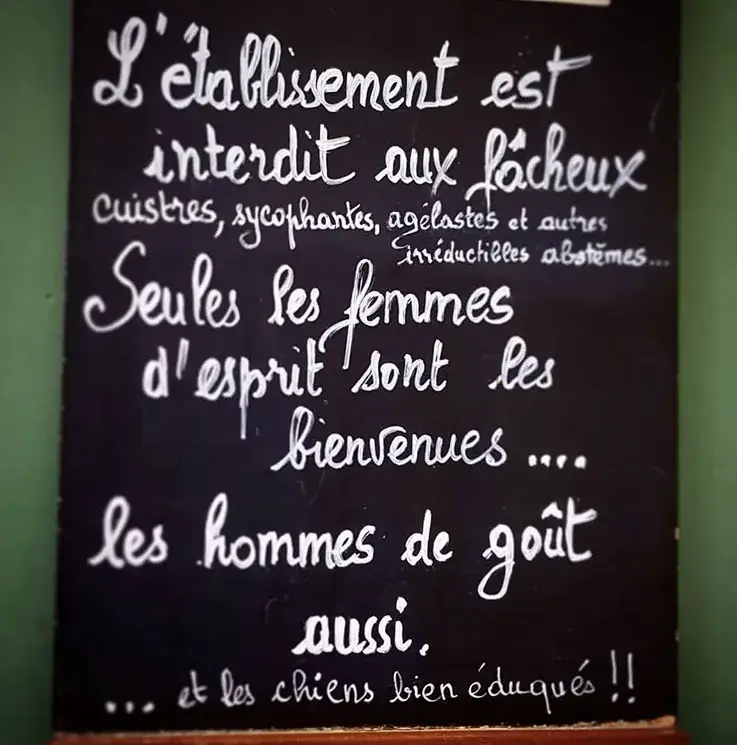 L'établissement est
interdit aux fâcheux
cuistres, sycophantes, agélastes et autres
irréductibles abstèmes...
Seules les femmes
d'esprit sont les
bienvenues ....
les hommes de goût
aussi.
... et les chiens bien éduqués !!